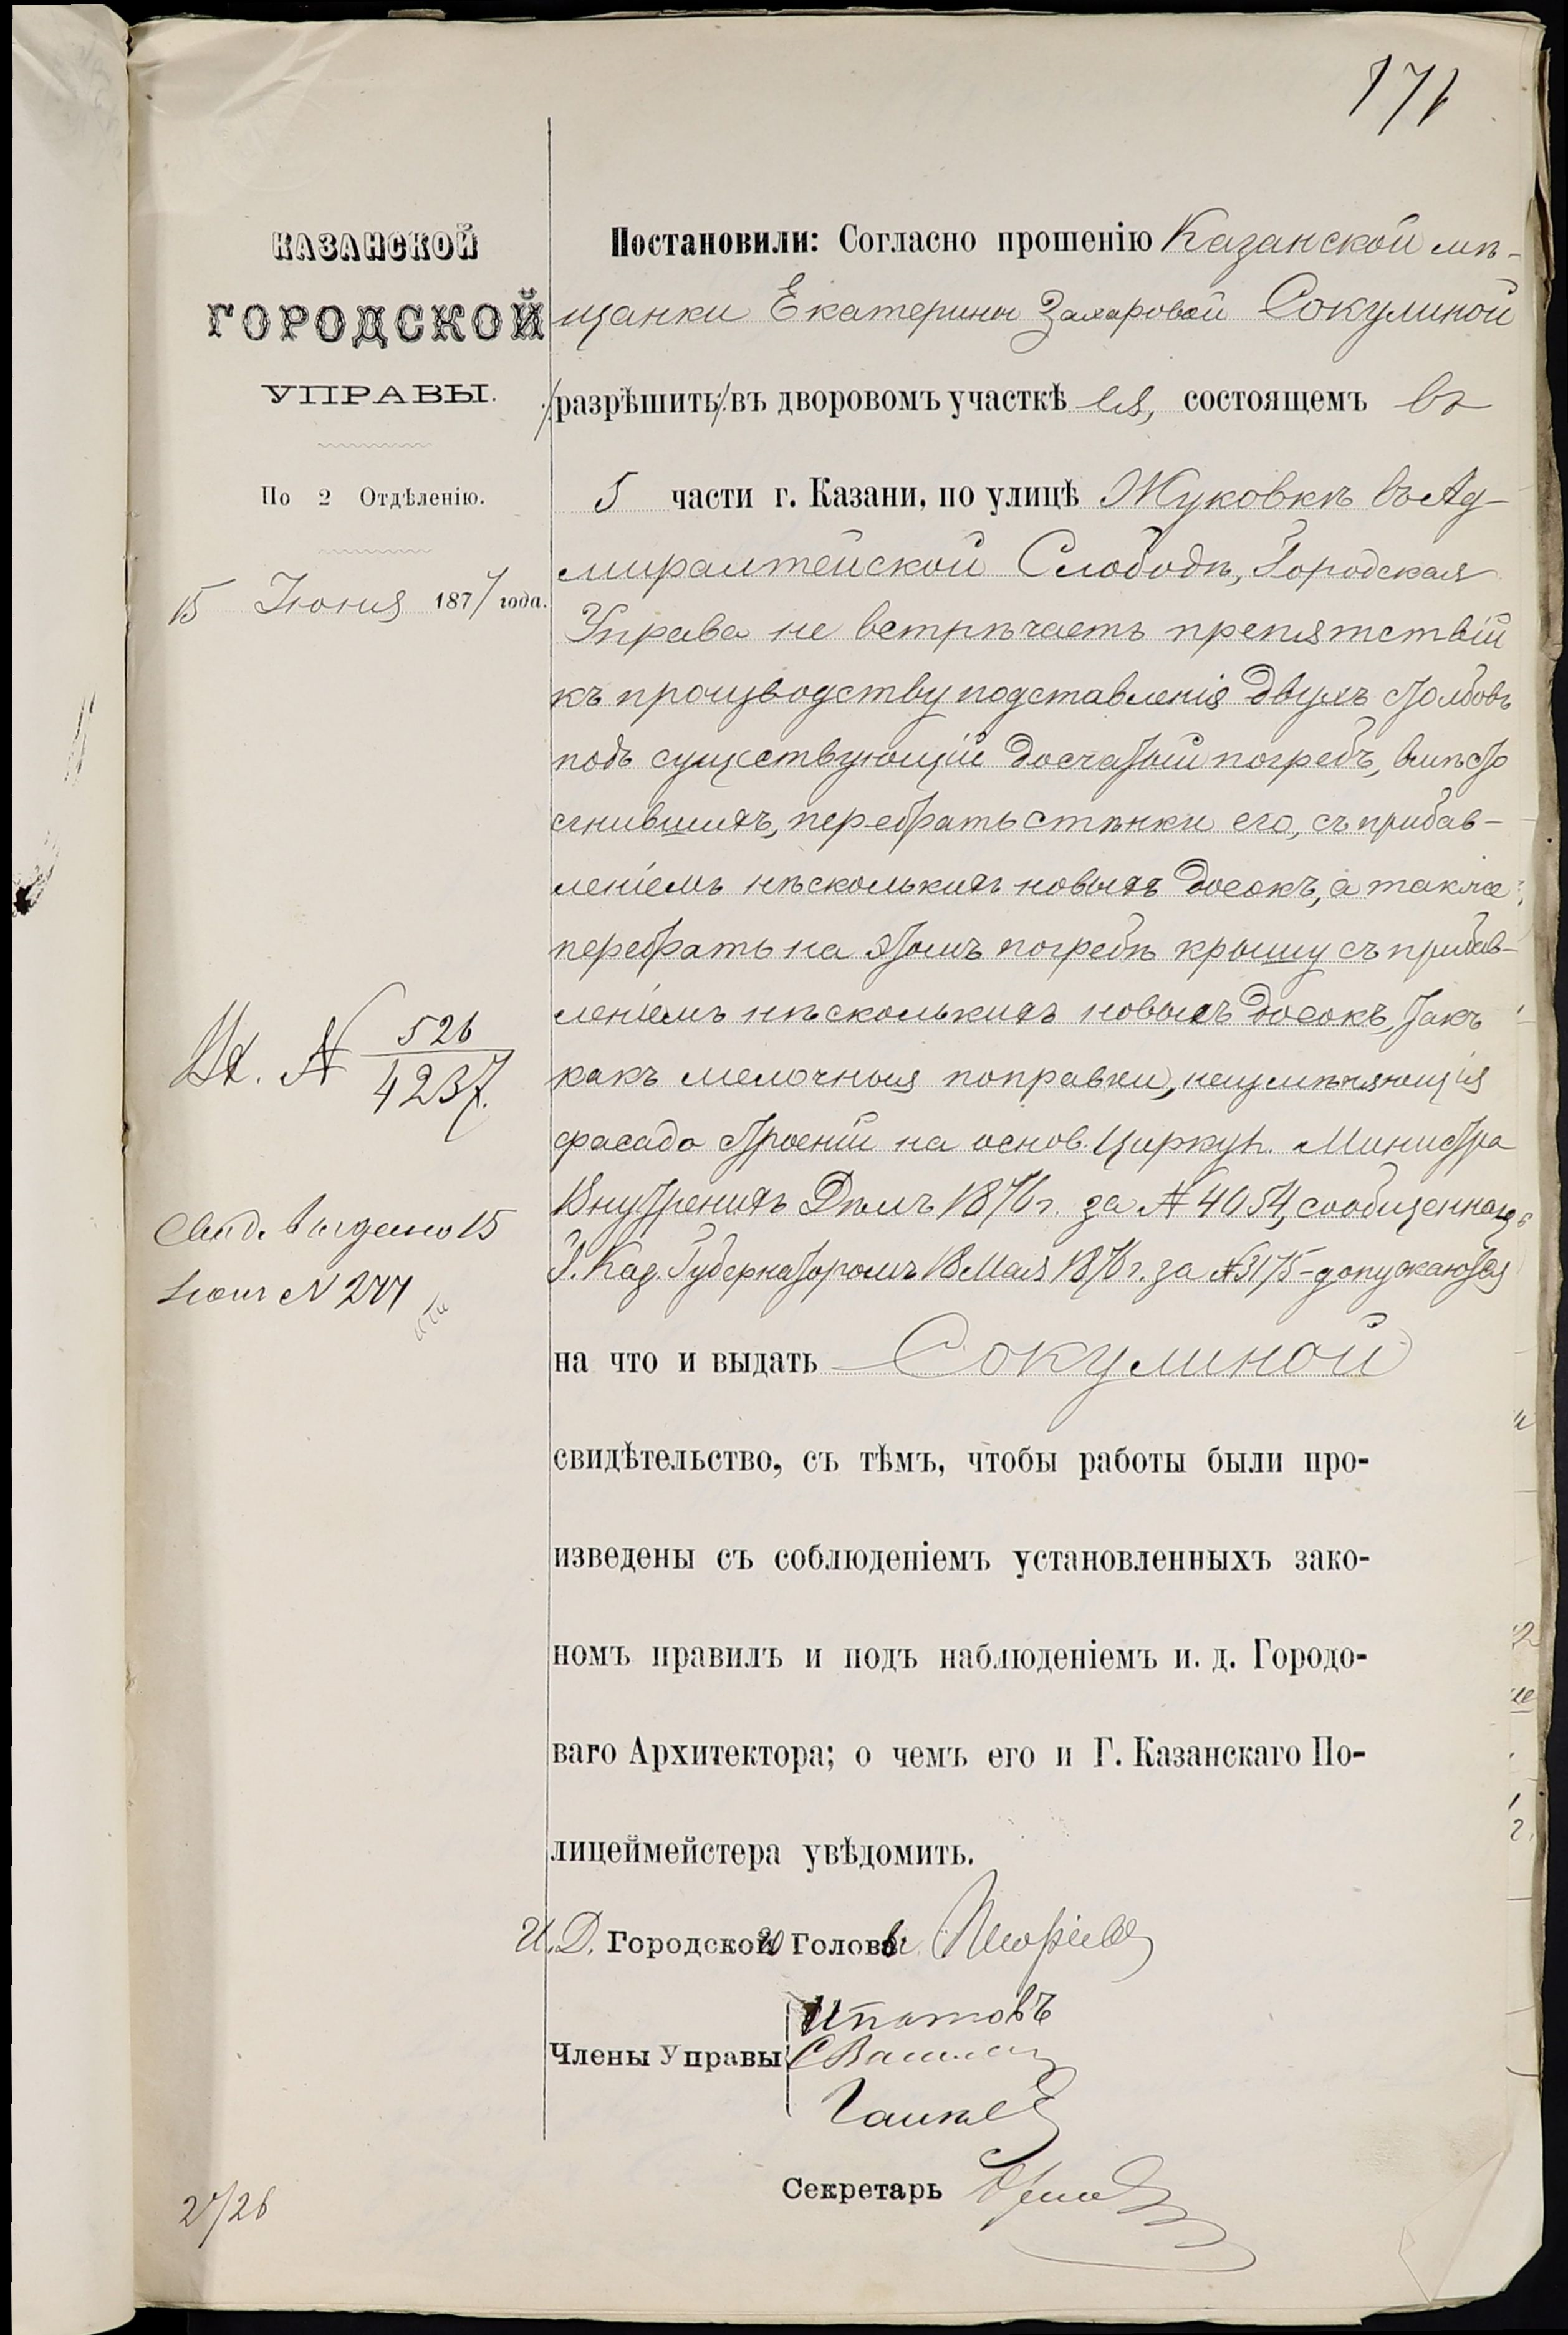 171
КАЗАНСКОЙ
ГОРОДСКОЙ
УПРАВЫ.
По 2 Отдѣленію.
15 Іюня 1877 года.
Постановили: Согласно прошенію Казанской мѣ-
щанки Екатерины Захаровой Сокулиной
/разрѣшить/ въ дворовомъ участкѣ ея, состоящемъ въ
5 части г. Казани, по улицѣ Жуковкѣ въ Ад-
миралтейской Слободѣ, Городская
Управа не встрѣчаетъ препятствій
къ производству подставленія двухъ столбовъ
подъ существующій досчатый погребъ, вмѣсто
сгнившихъ, перебрать стѣнки его, съ прибав-
леніемъ нѣсколькихъ новыхъ досокъ, а также
перебрать на этомъ погребѣ крышу съ прибав-
леніемъ нѣсколькихъ новыхъ досокъ, такъ
какъ мелочныя поправки, неизмѣняющія
фасада строеній на основ. Циркул. Министра
Внутренихъ Дѣлъ 1876 г. за № 4054, сообщеннаго
Г. Каз. Губернаторомъ 18 Мая 1876 г. за № 3175 – допускаются
на что и выдать Сокулиной
свидѣтельство, съ тѣмъ, чтобы работы были про-
изведены съ соблюденіемъ установленныхъ зако-
номъ правилъ и подъ наблюденіемъ и. д. Городо-
ваго Архитектора; о чемъ его и Г. Казанскаго По-
лицеймейстера увѣдомить.
И. Д. Городского Головы
Члены Управы
Ипатовъ
Секретарь
Их. № 526
4237.
Свид. выдано 15
Іюня № 277
2/26